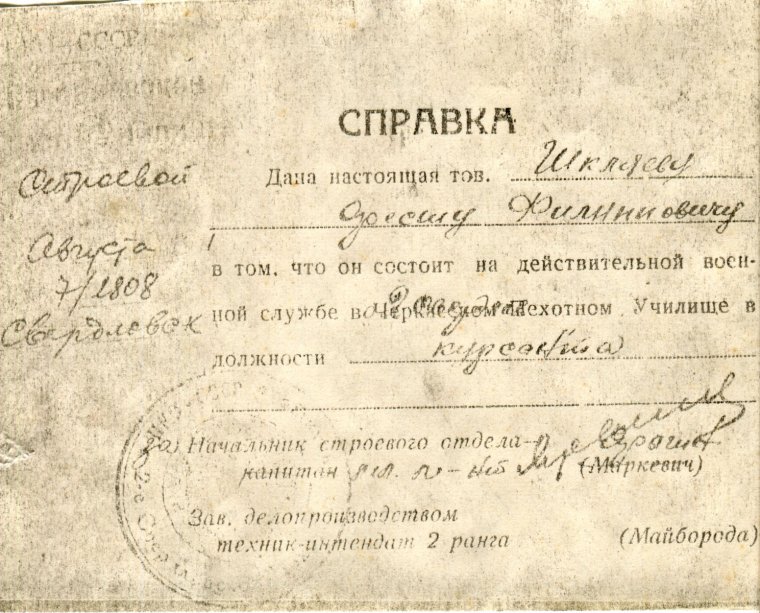 СССР
СПРАВКА
Строевой
Дана настоящая тов. Шкляеву
Филипповичу
Августа
в том, что он состоит на действительной воен-
7/1808
ной службе в Черкасском Пехотном Училище в
Свердловск
должности курсанта
за) Начальник строевого отдела-
капитан (Маркевич)
Зав. делопроизводством
техник-интендат 2 ранга (Майборода)